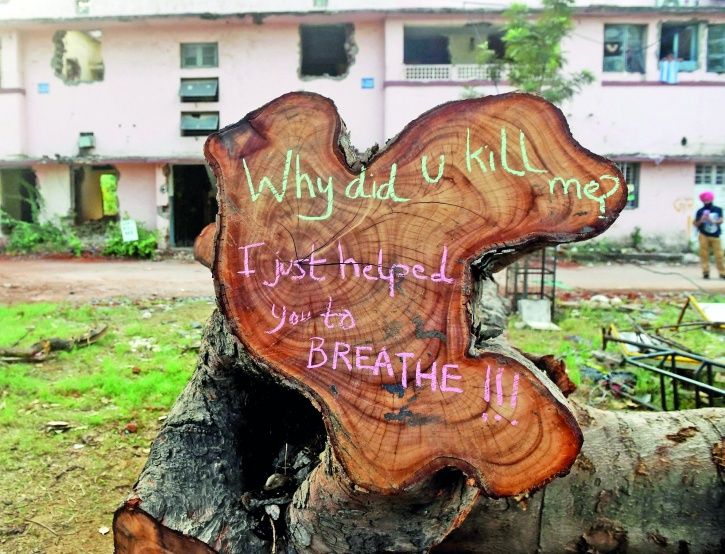 Why did u kill me?
I just helped
You to
BREATHE !!!